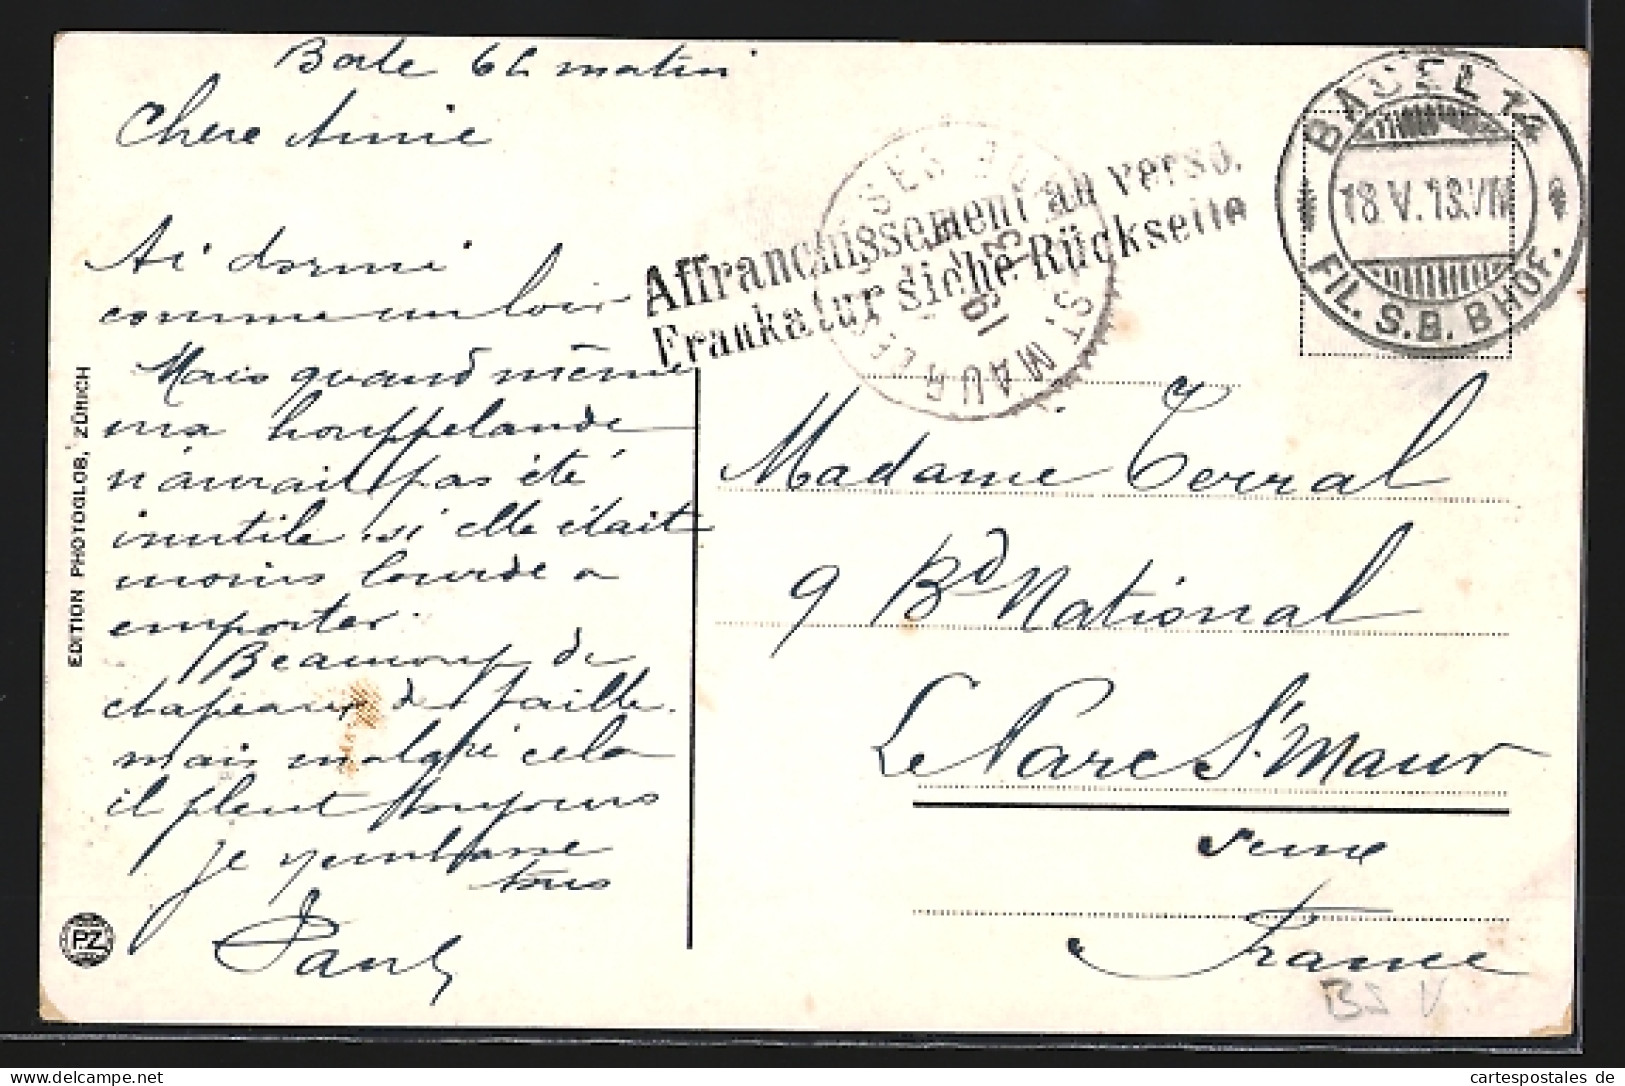 Basle 6h matin
Chere Amie
Ai dormi
comme un loir
Mais quand même
ma houppelande
n'aurait pas été
inutile si elle était
moins lourde a
emporter.
Beaucoup de
chapeaux de paille.
mais malgré cela
il pleut toujours
je vous embrasse
tous
Paul
EDITION PHOTOGLOB, ZÜRICH
PZ
Affranchissement au verso.
Frankatur siehe Rückseite
ST MAUR
BASEL 14
18.V.13.VII
FIL. S.B. BHOF.
Madame Terral
9 Bd National
Le Parc St Maur
Seine
France
BS V
cartespostales de